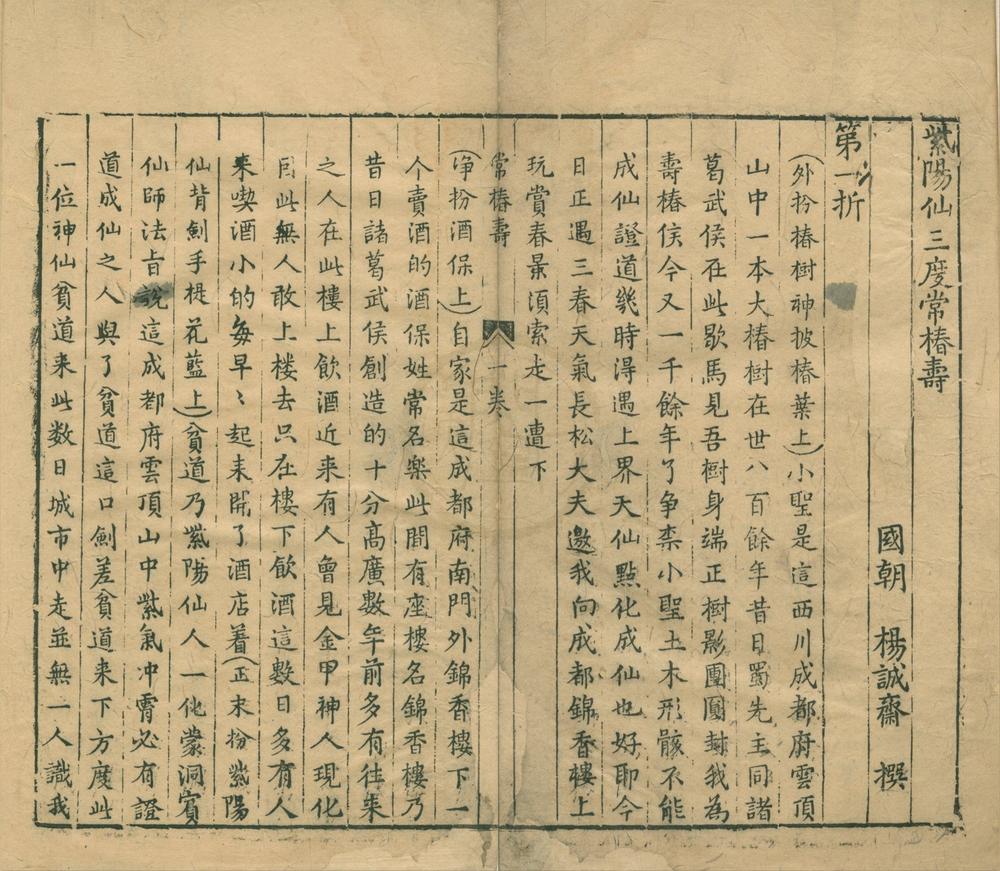 紫陽仙三度常椿壽
國朝 楊誠齋 撰
第一折
(外扮椿樹神披椿葉上)小聖是這西川成都府雲頂
山中一本大椿樹在世八百餘年昔日蜀先主同諸
葛武侯在此歇馬見吾樹身端正樹影團圞封我為
壽椿侯今又一千餘年了爭柰小聖土木形骸不能
成仙證道幾時得遇上界天仙㸃化成仙也好即今
日正遇三春天氣長松大夫邀我向成都錦香樓上
玩賞春景須索走一遭下
常椿壽 一卷
(净扮酒保上)自家是這成都府南門外錦香樓下一
个賣酒的酒保姓常名樂此間有座樓名錦香樓乃
昔日諸葛武侯創造的十分高廣數年前多有往来
之人在此樓上飲酒近来有人曾見金甲神人現化
因此無人敢上楼去只在樓下飲酒這數日多有人
来喫酒小的每早〻起来開了酒店着(正末扮紫陽
仙背劍手提花藍上)貧道乃紫陽仙人一化蒙洞賓
仙師法旨說這成都府雲頂山中紫氣冲霄必有證
道成仙之人與了貧道這口劍差貧道来下方度此
一位神仙貧道来此数日城市中走並無一人識我